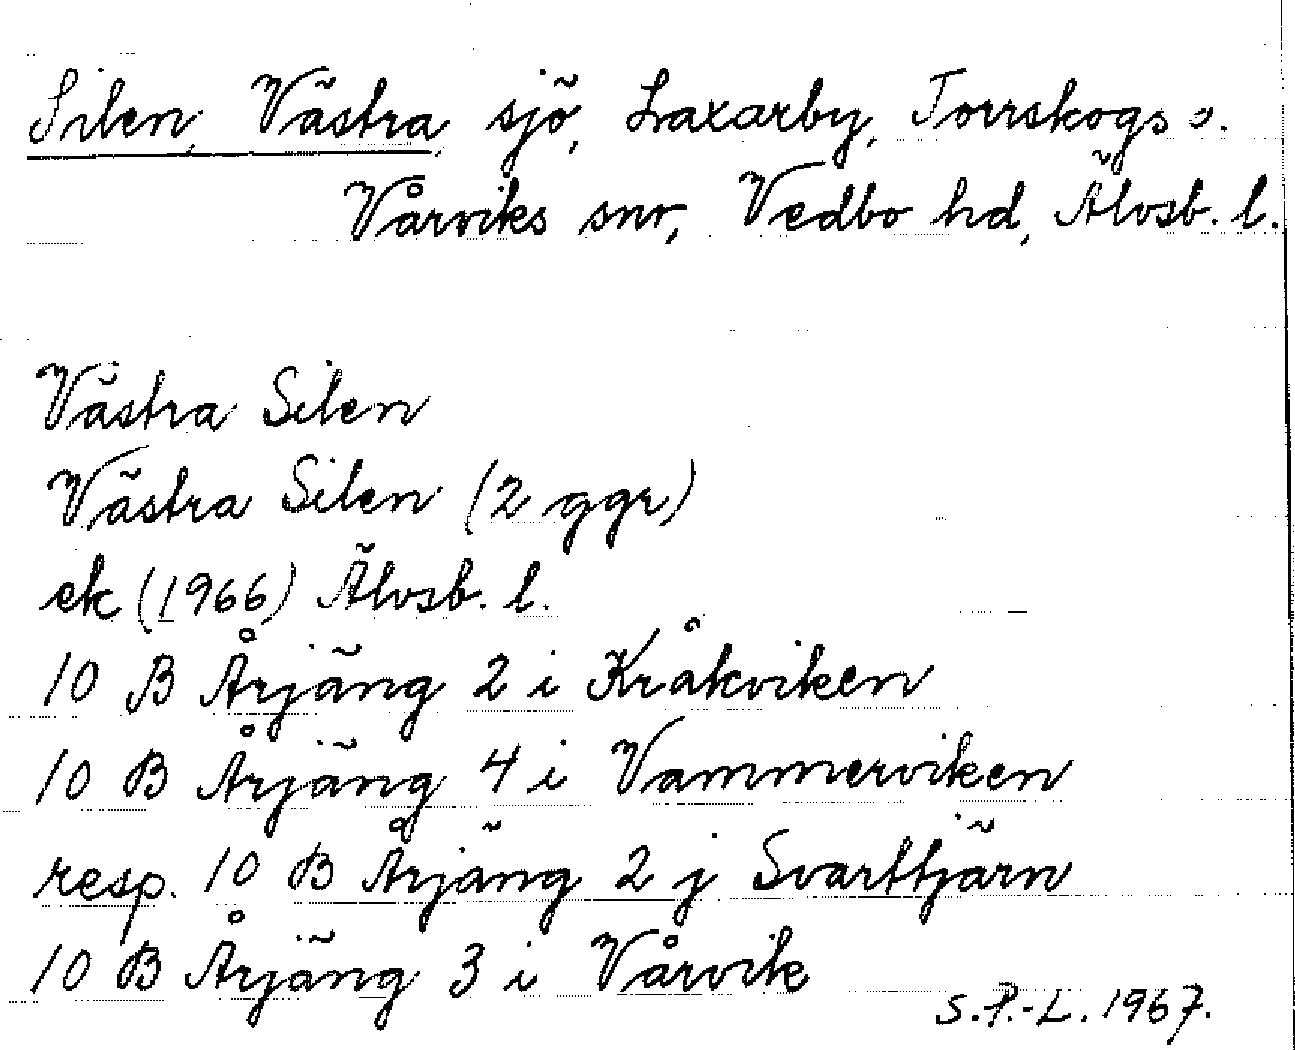 Silen, Västra, sjö, Laxarby, Torrskogs o.
Vårviks snr, Vedbo hd, Älvsb. l.
Västra Silen
Västra Silen (2 ggr)
ek (1966) Älvsb. l.
10 B Årjäng 2 i Kråkviken
10 B Årjäng 4 i Vammerviken
resp. 10 B Årjäng 2 j Svarttjärn
10 B Årjäng 3 i Vårvik
S.P.-L. 1967.